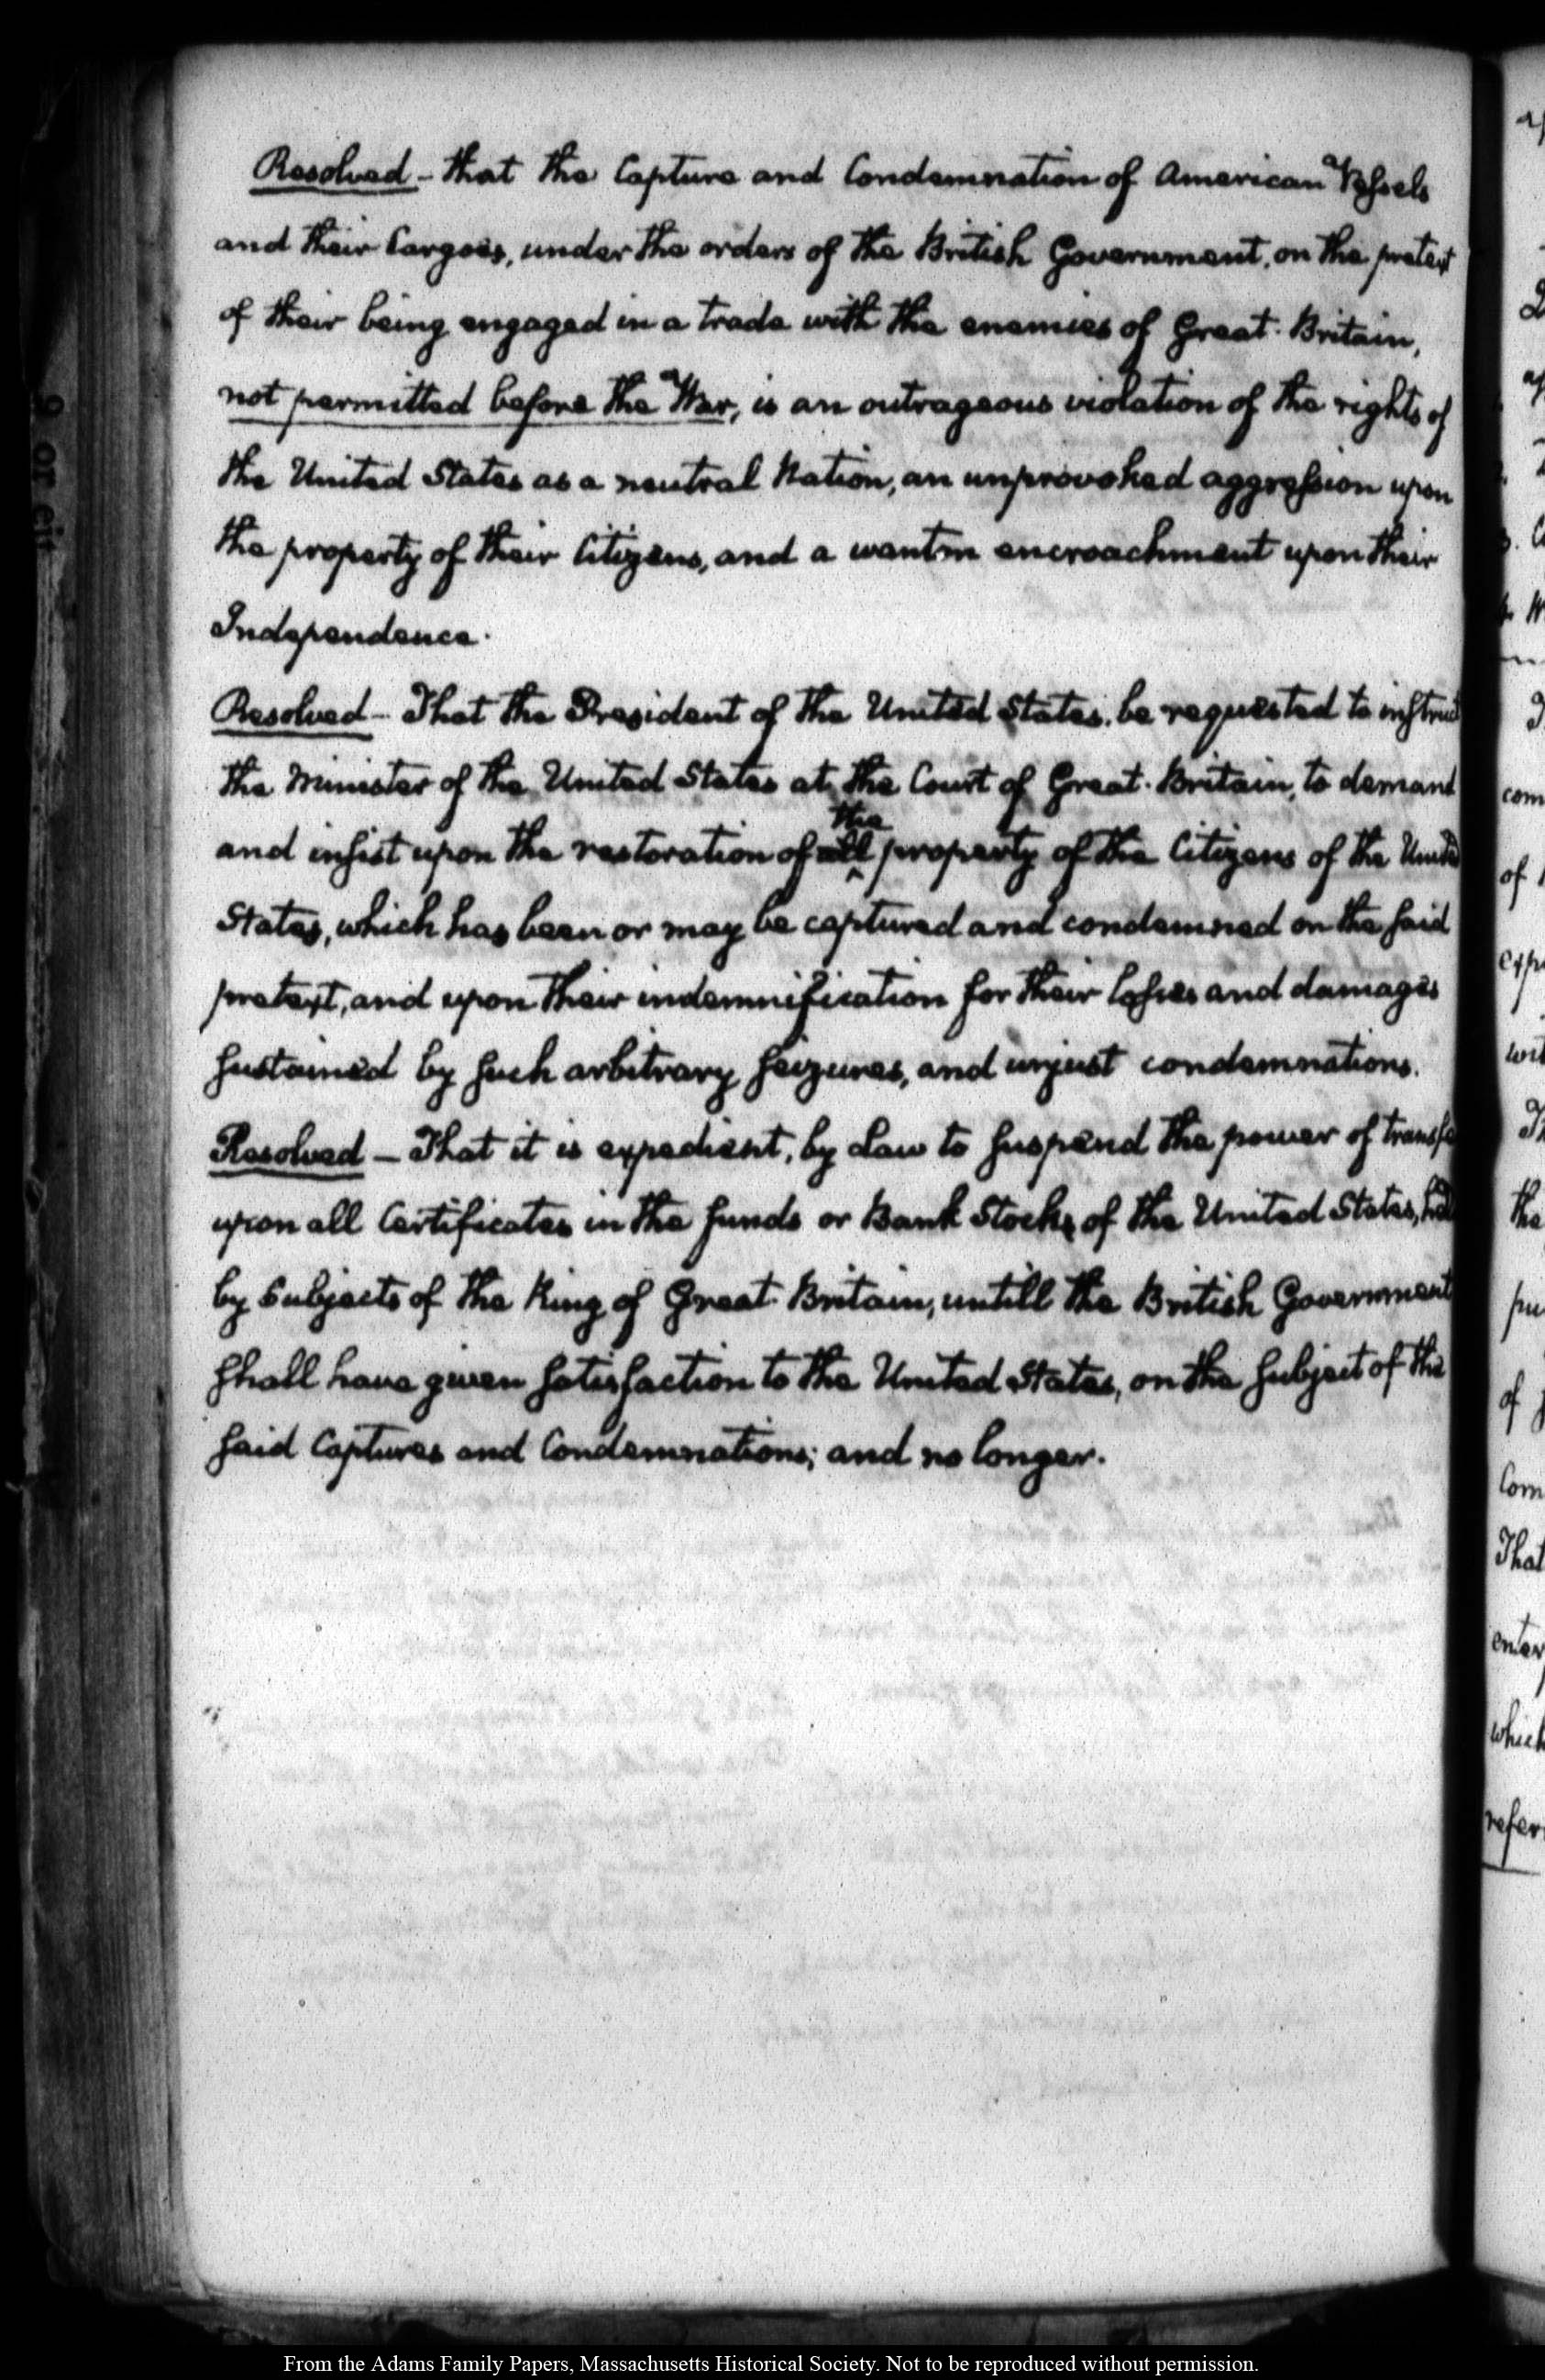 Resolved - that the Capture and Condemnation of American Vessels
and their Cargoes, under the orders of the British Government, on the pretext
of their being engaged in a trade with the enemies of Great-Britain,
not permitted before the War, is an outrageous violation of the rights of
the United States as a neutral Nation, an unprovoked aggression upon
the property of their Citizens, and a wanton encroachment upon their
Independence.
Resolved - That the President of the United States, be requested to instruct
the Minister of the United States at the Court of Great-Britain, to demand
the
and insist upon the restoration of all property of the Citizens of the United
States, which has been or may be captured and condemned on the said
pretext, and upon their indemnification for their losses and damages
sustained by such arbitrary seizures, and unjust condemnations.
Resolved - That it is expedient, by Law to suspend the power of transfe
upon all Certificates in the funds or Bank Stocks of the United States, held
by Subjects of the King of Great-Britain, untill the British Government
shall have given satisfaction to the United States, on the subject of the
said Captures and Condemnations; and no longer.
com
of
exp
wit
Th
the
pu
of
Com
That
enter
which
refer
From the Adams Family Papers, Massachusetts Historical Society. Not to be reproduced without permission.